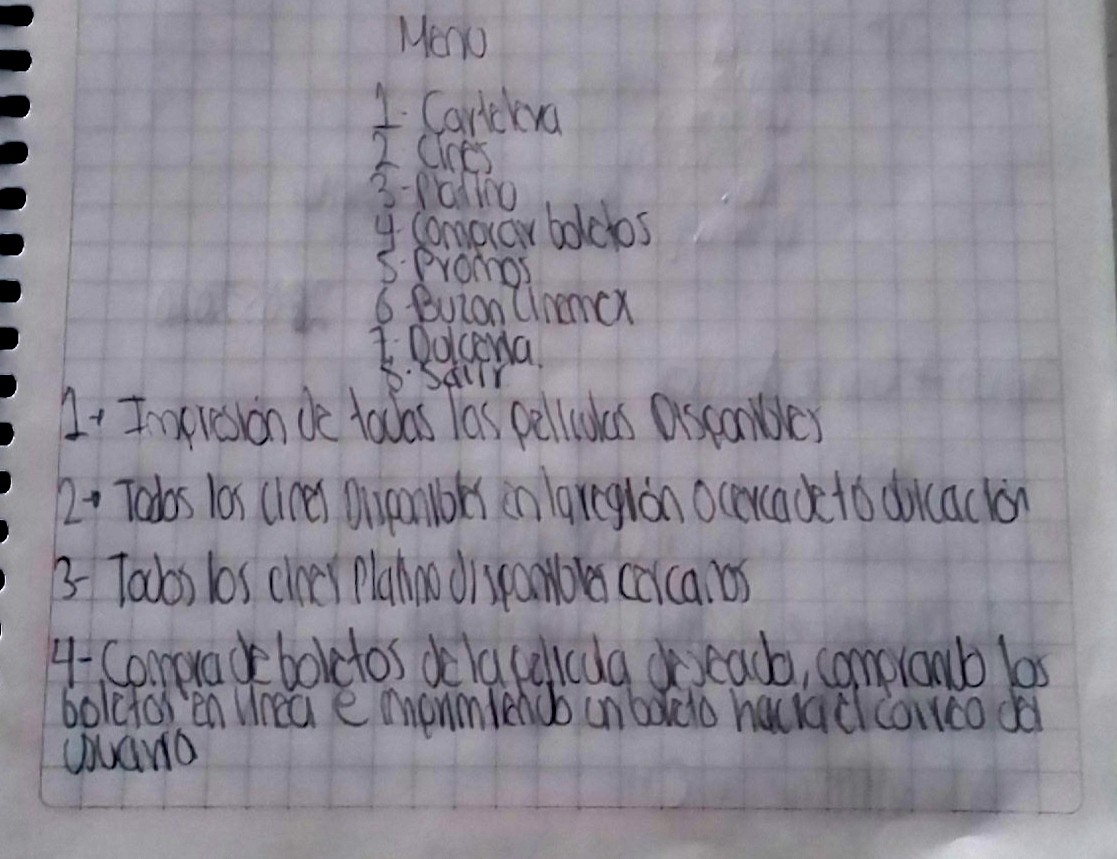 Menu
1- Cartelera
2 Cines
3-Platino
4-Comprar boletos
5-Promos
6-Buzon Cinemex
7-Dulceria.
8-Salir
1→ Impresión de todas las peliculas Disponibles
2→ Todos los cines Disponibles en la región o cerca de tú ubicación
3- Todos los cines Platino disponibles cercanos
4- Compra de boletos de la pelicula deseada, comprando los
boletos en linea e imprimiendo un boleto hacia el correo del
usuario